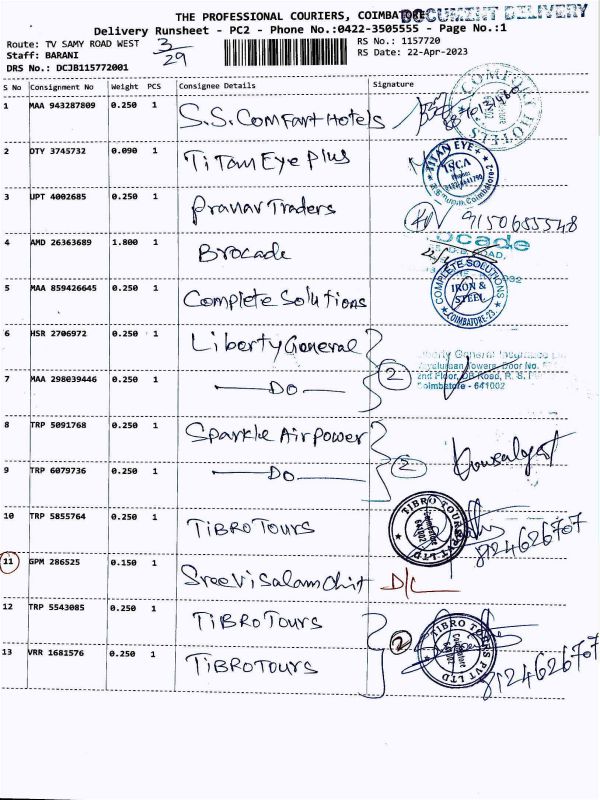 THE PROFESSIONAL COURIERS, COIMBATORE
DOCUMENT DELIVERY
Delivery Runsheet - PC2 - Phone No.:0422-3505555 - Page No.:1
Route: TV SAMY ROAD WEST 3/29 RS No.: 1157720
Staff: BARANI RS Date: 22-Apr-2023
DRS No.: DCJB115772001
S No Consignment No Weight PCS Consignee Details Signature
1 MAA 943287809 0.250 1 S.S. Comfart Hotels
COMFORT HOTELS
2 DTY 3745732 0.090 1 Titan Eye Plus
TITAN EYE+
3 UPT 4002685 0.250 1 Pranav Traders 9150655548
4 AMD 26363689 1.800 1 Brocade
5 MAA 859426645 0.250 1 Complete Solutions
COMPLETE SOLUTIONS
IRON &
STEEL
COIMBATORE-23
6 HSR 2706972 0.250 1 Liberty General
Liberty General Insurance
7 MAA 298039446 0.250 1 Do 2
2nd Floor, DB Road, R. S.
Coimbatore - 641002
8 TRP 5091768 0.250 1 Sparkle Airpower
9 TRP 6079736 0.250 1 Do 2
10 TRP 5855764 0.250 1 TiBRO Tours
TIBRO TOURS PVT LTD
8124626707
11 GPM 286525 0.150 1 Sree Visalam Chit D/L
12 TRP 5543085 0.250 1 TiBRO Tours 2
TIBRO TOURS PVT LTD
13 VRR 1681576 0.250 1 TiBRO TOURS 8124626707